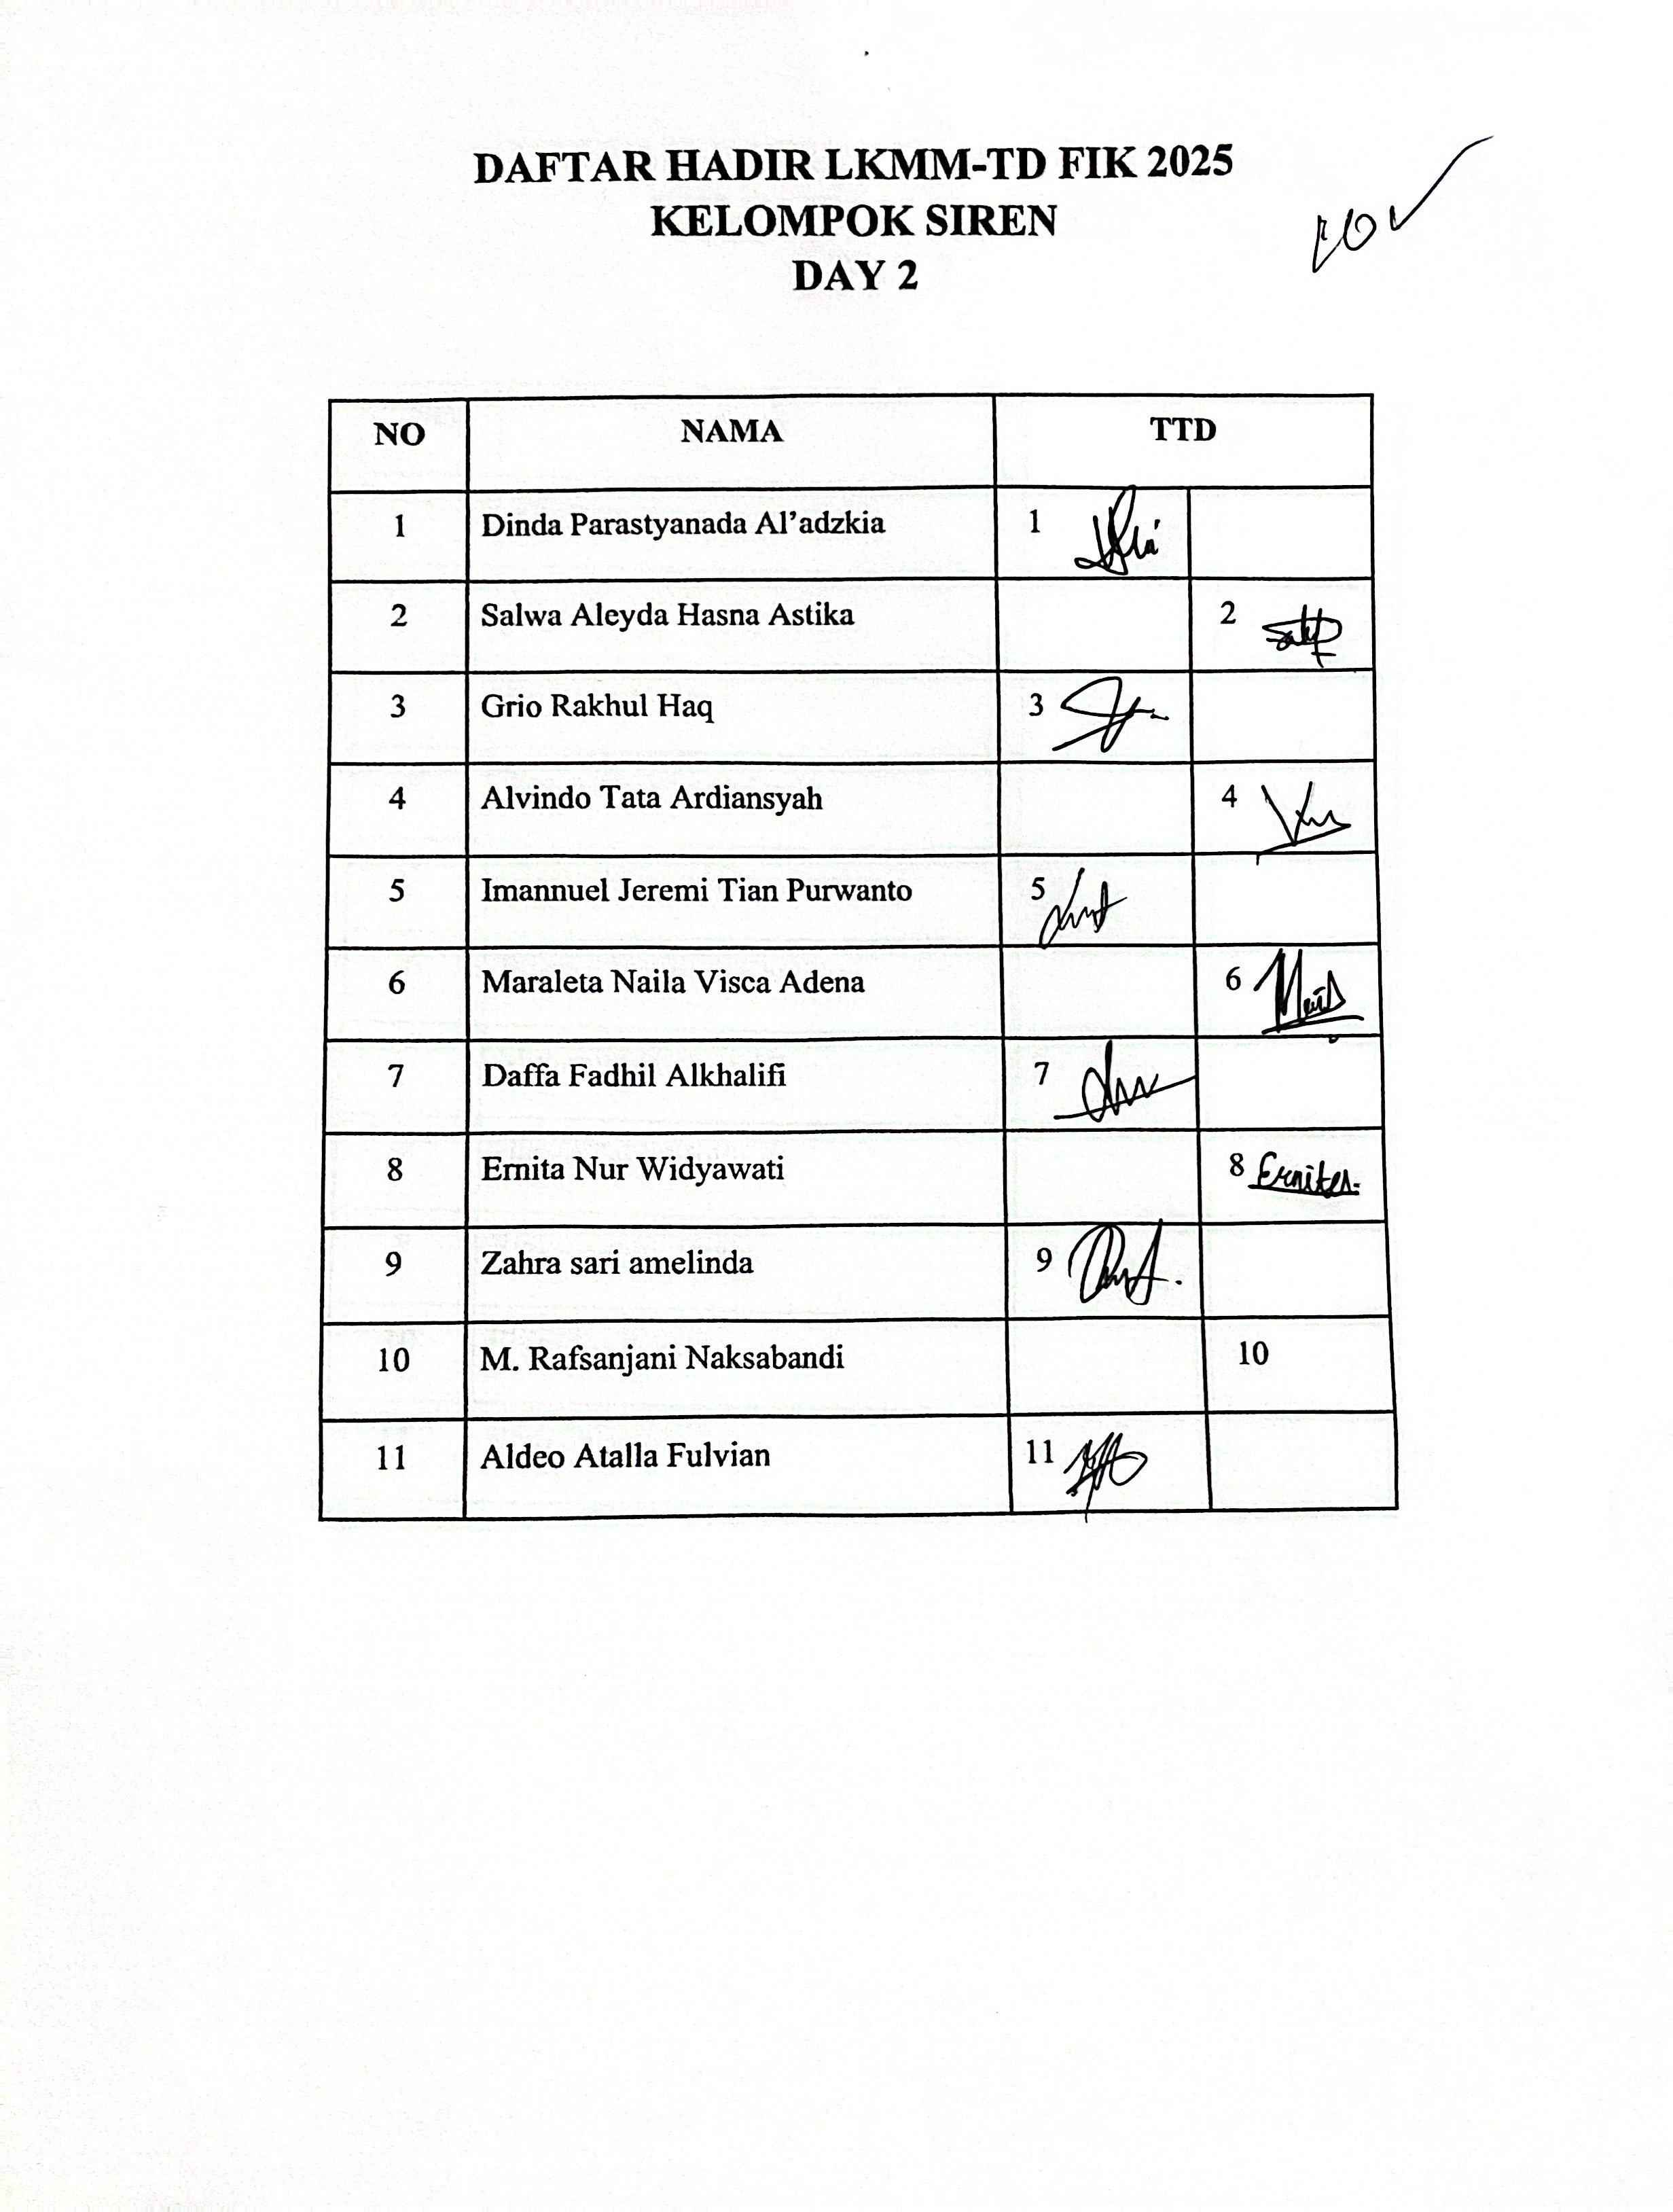 DAFTAR HADIR LKMM-TD FIK 2025
KELOMPOK SIREN
DAY 2
NO NAMA TTD
1 Dinda Parastyanada Al’adzkia 1
2 Salwa Aleyda Hasna Astika 2
3 Grio Rakhul Haq 3
4 Alvindo Tata Ardiansyah 4
5 Imannuel Jeremi Tian Purwanto 5
6 Maraleta Naila Visca Adena 6
7 Daffa Fadhil Alkhalifi 7
8 Ernita Nur Widyawati 8
9 Zahra sari amelinda 9
10 M. Rafsanjani Naksabandi 10
11 Aldeo Atalla Fulvian 11